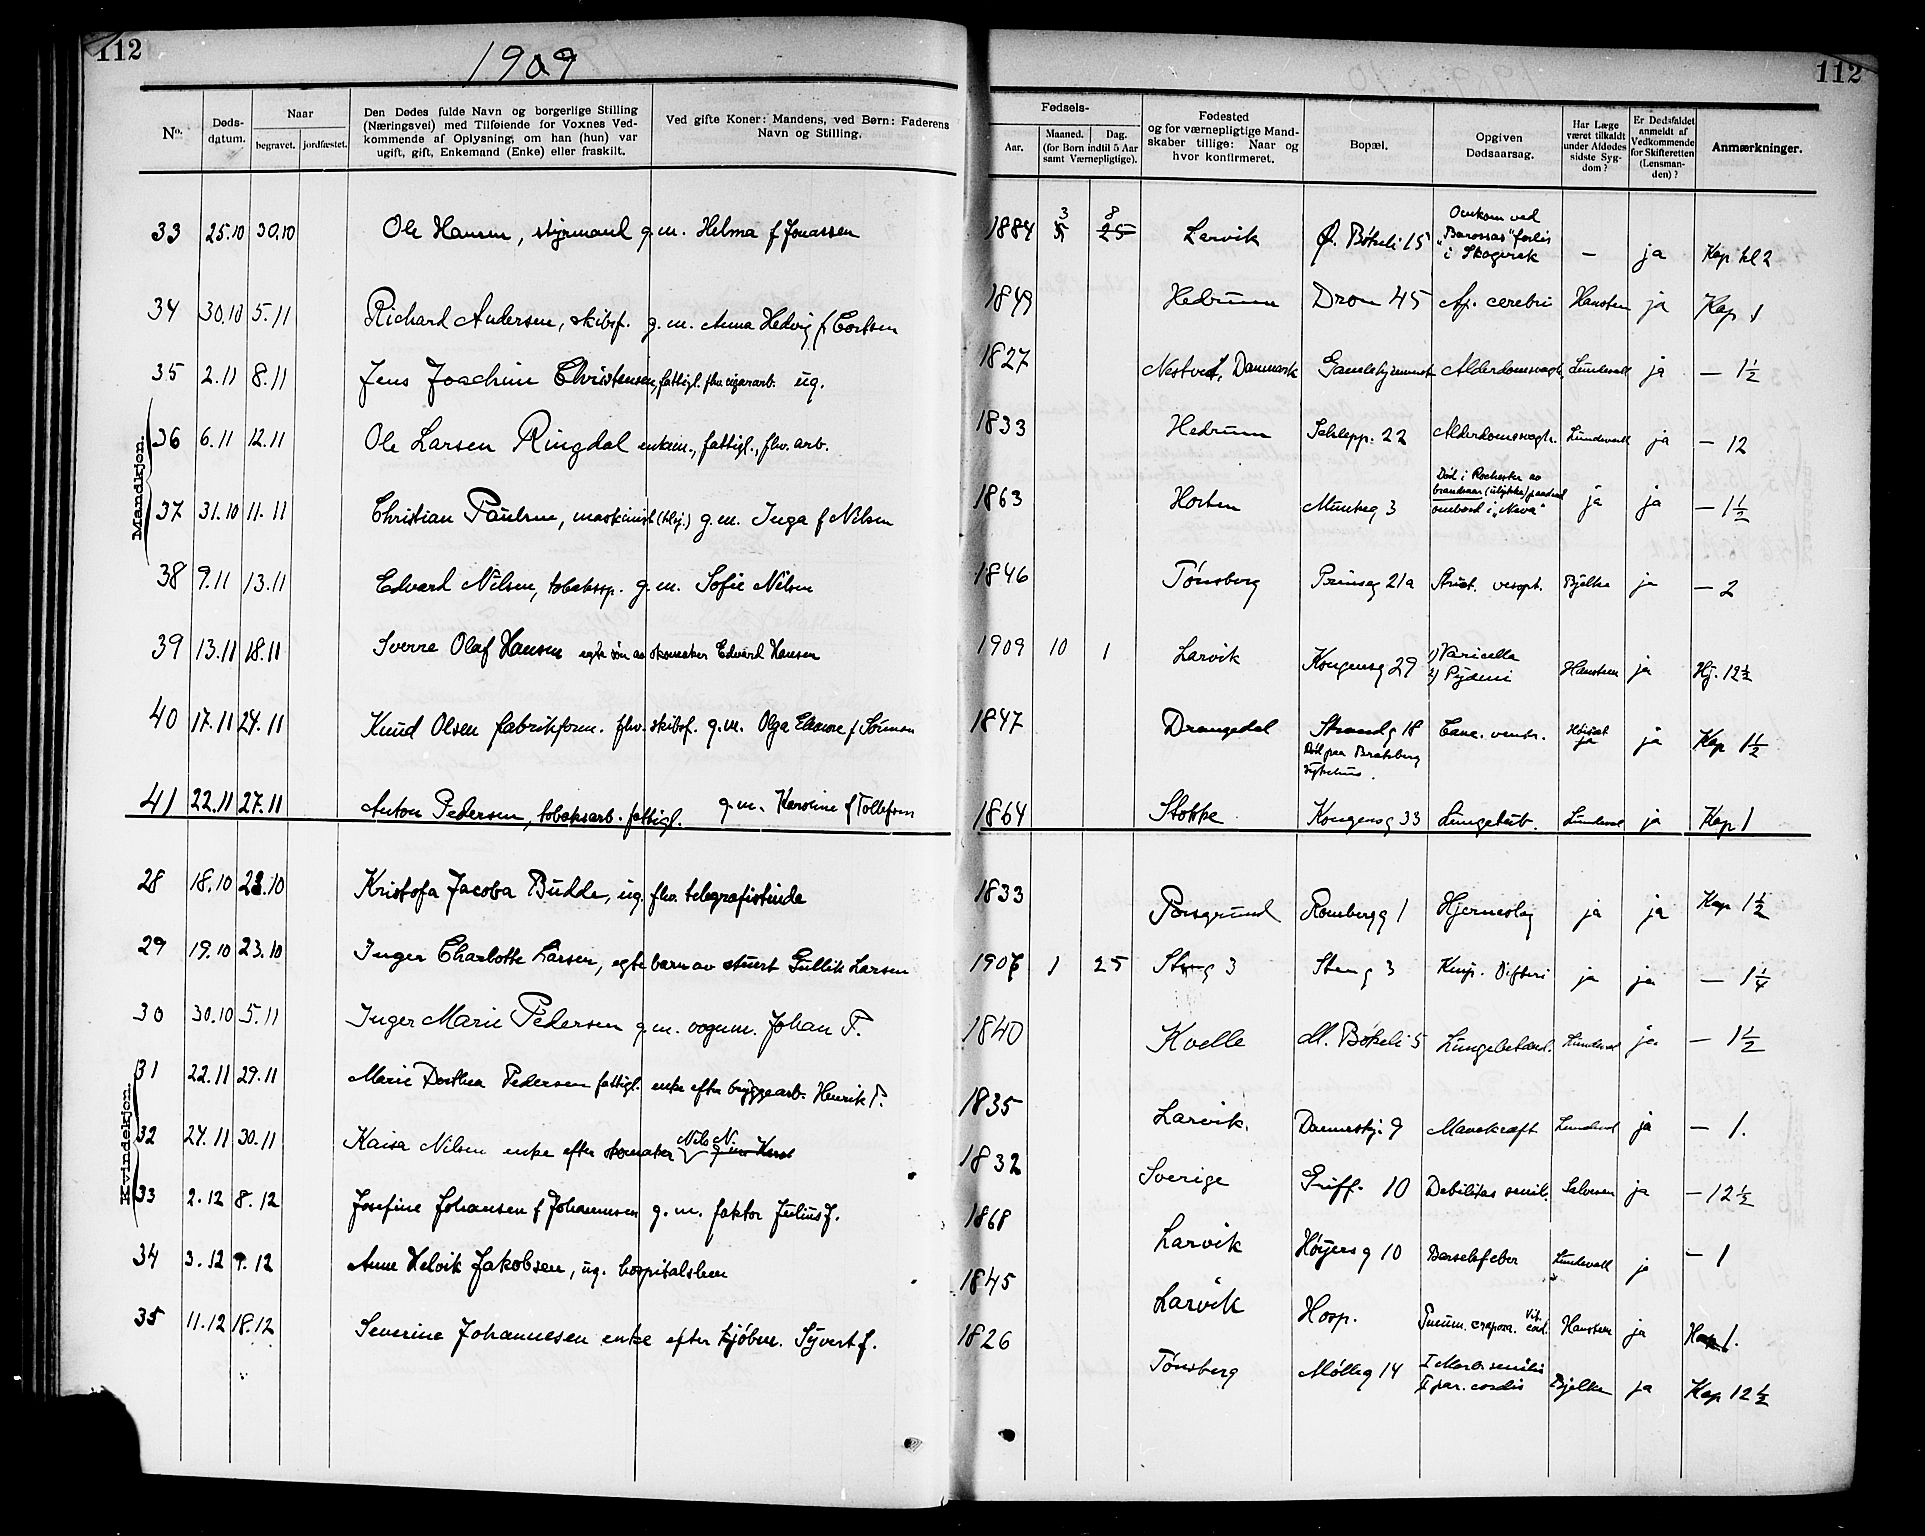 112
1909
112
No.
Døds-datum.
Naar
begravet.
jordfæstet.
Den Dødes fulde Navn og borgerlige Stilling
(Næringsvei) med Tilføiende for Voxnes Ved-
kommende af Oplysning, om han (hun) var
ugift, gift, Enkemand (Enke) eller fraskilt.
Ved gifte Koner: Mandens, ved Børn: Faderens
Navn og Stilling.
Fødsels-
Aar.
Maaned.
Dag.
(for Børn indtil 5 Aar
samt Værnepligtige).
Fødested
og for værnepligtige Mand-
skaber tillige: Naar og
hvor konfirmeret.
Bopæl.
Opgiven
Dødsaarsag.
Har Læge
været tilkaldt
under Afdødes
sidste Syg-
dom?
Er Dødsfaldet
anmeldt af
Vedkommende
for Skifteretten
(Lensman-
den)?
Anmærkninger.
Mandkjøn.
33 25.10 30.10 Ole Hansen, styrmand g.m. Helma f Jonassen 1884 3 8 Larvik Ø. Bøkeli 15 Omkom ved "Barossas" forlis i Skagerak — ja Kap kl 2
34 30.10 5.11 Richard Andersen, skibsf. g.m. Anna Hedvig f 1849 Hedrum Dron 45 Ap. cerebri Hansteen ja Kap 1
35 2.11 8.11 Jens Joachim Christensen, fattigl. fhv. cigararb. ug. 1827 Nestved, Danmark Gamlehjemmet Alderdomssvagh. Lundevall ja — 1½
36 6.11 12.11 Ole Larsen Ringdal enkem., fattigl., fhv. arb. 1833 Hedrum Schlepp. 22 Alderdomssvagh. Lundevall ja — 12
37 31.10 11.11 Christian Paulsen, maskinist g.m. Inga f Nilsen 1863 Horten Munkeg 3 Død i Rochester av brandsaar (ulykke) ombord i "Neva" ja ja — 1½
38 9.11 13.11 Edvard Nilsen, tobaksp. g.m. Sofie Nilsen 1846 Tønsberg Prinseg 21a Strict. Bjelke ja — 2
39 13.11 18.11 Sverre Olaf Hansen egte søn av skomaker Edvard Hansen 1909 10 1 Larvik Kongensg 29 1) Varicella 2) Pyæmi Hansteen ja Hj. 12½
40 17.11 24.11 Knud Olsen fabrikform. fhv. skibsf. g.m. Olga Eleonore f Sørensen 1847 Drangedal Strandg 18 Død paa Bratsberg sykehus. Canc. ventr. ja ja Kap 1½
41 22.11 27.11 Anton Pedersen, tobaksarb. fattigl. g.m. Karoline f Tollefsen 1864 Stokke Kongensg 33 Lungetub. Lundevall ja Kap 1
Kvindekjøn.
28 18.10 23.10 Kristofa Jacoba Budde, ug. fhv. telegrafistinde 1833 Porsgrund Rombergg 1 Hjerneslag ja ja Kap 1½
29 19.10 23.10 Inger Charlotte Larsen, egte barn av stuert Gullik Larsen 1907 1 25 Steng 3 Steng 3 Krup. Difteri ja ja — 1¼
30 30.10 5.11 Inger Marie Pedersen g.m. vognm. Johan P. 1840 Kvelle Ml. Bøkeli 5 Lungebetænd. Lundevall ja — 1½
31 22.11 29.11 Marie Dorthea Pedersen fattigl. enke efter bryggearb. Henrik P. 1835 Larvik. Dammenskj. 9 Mavekræft Lundevall ja — 1.
32 27.11 30.11 Kaisa Nilsen enke efter skomaker Nils N. 1832 Sverige Griff. 10 Debilitas senil. Salvesen ja — 12½
33 2.12 8.12 Josefine Johansen f Johannessen g.m. faktor Julius J. 1868 Larvik Høyersg 10 Barselsfeber Lundevall ja — 1
34 3.12 9.12 Anne Helvik Jakobsen, ug. hospitalslem 1845 Larvik Hosp. Pneum. crouposa. Vit. cord. Hansteen ja Hosp 1.
35 11.12 18.12 Severine Johannesen enke efter kjøbm. Syvert J. 1826 Tønsberg Mølleg 14 I Maras. senilis II par. cordis Bjelke ja Kap 12½